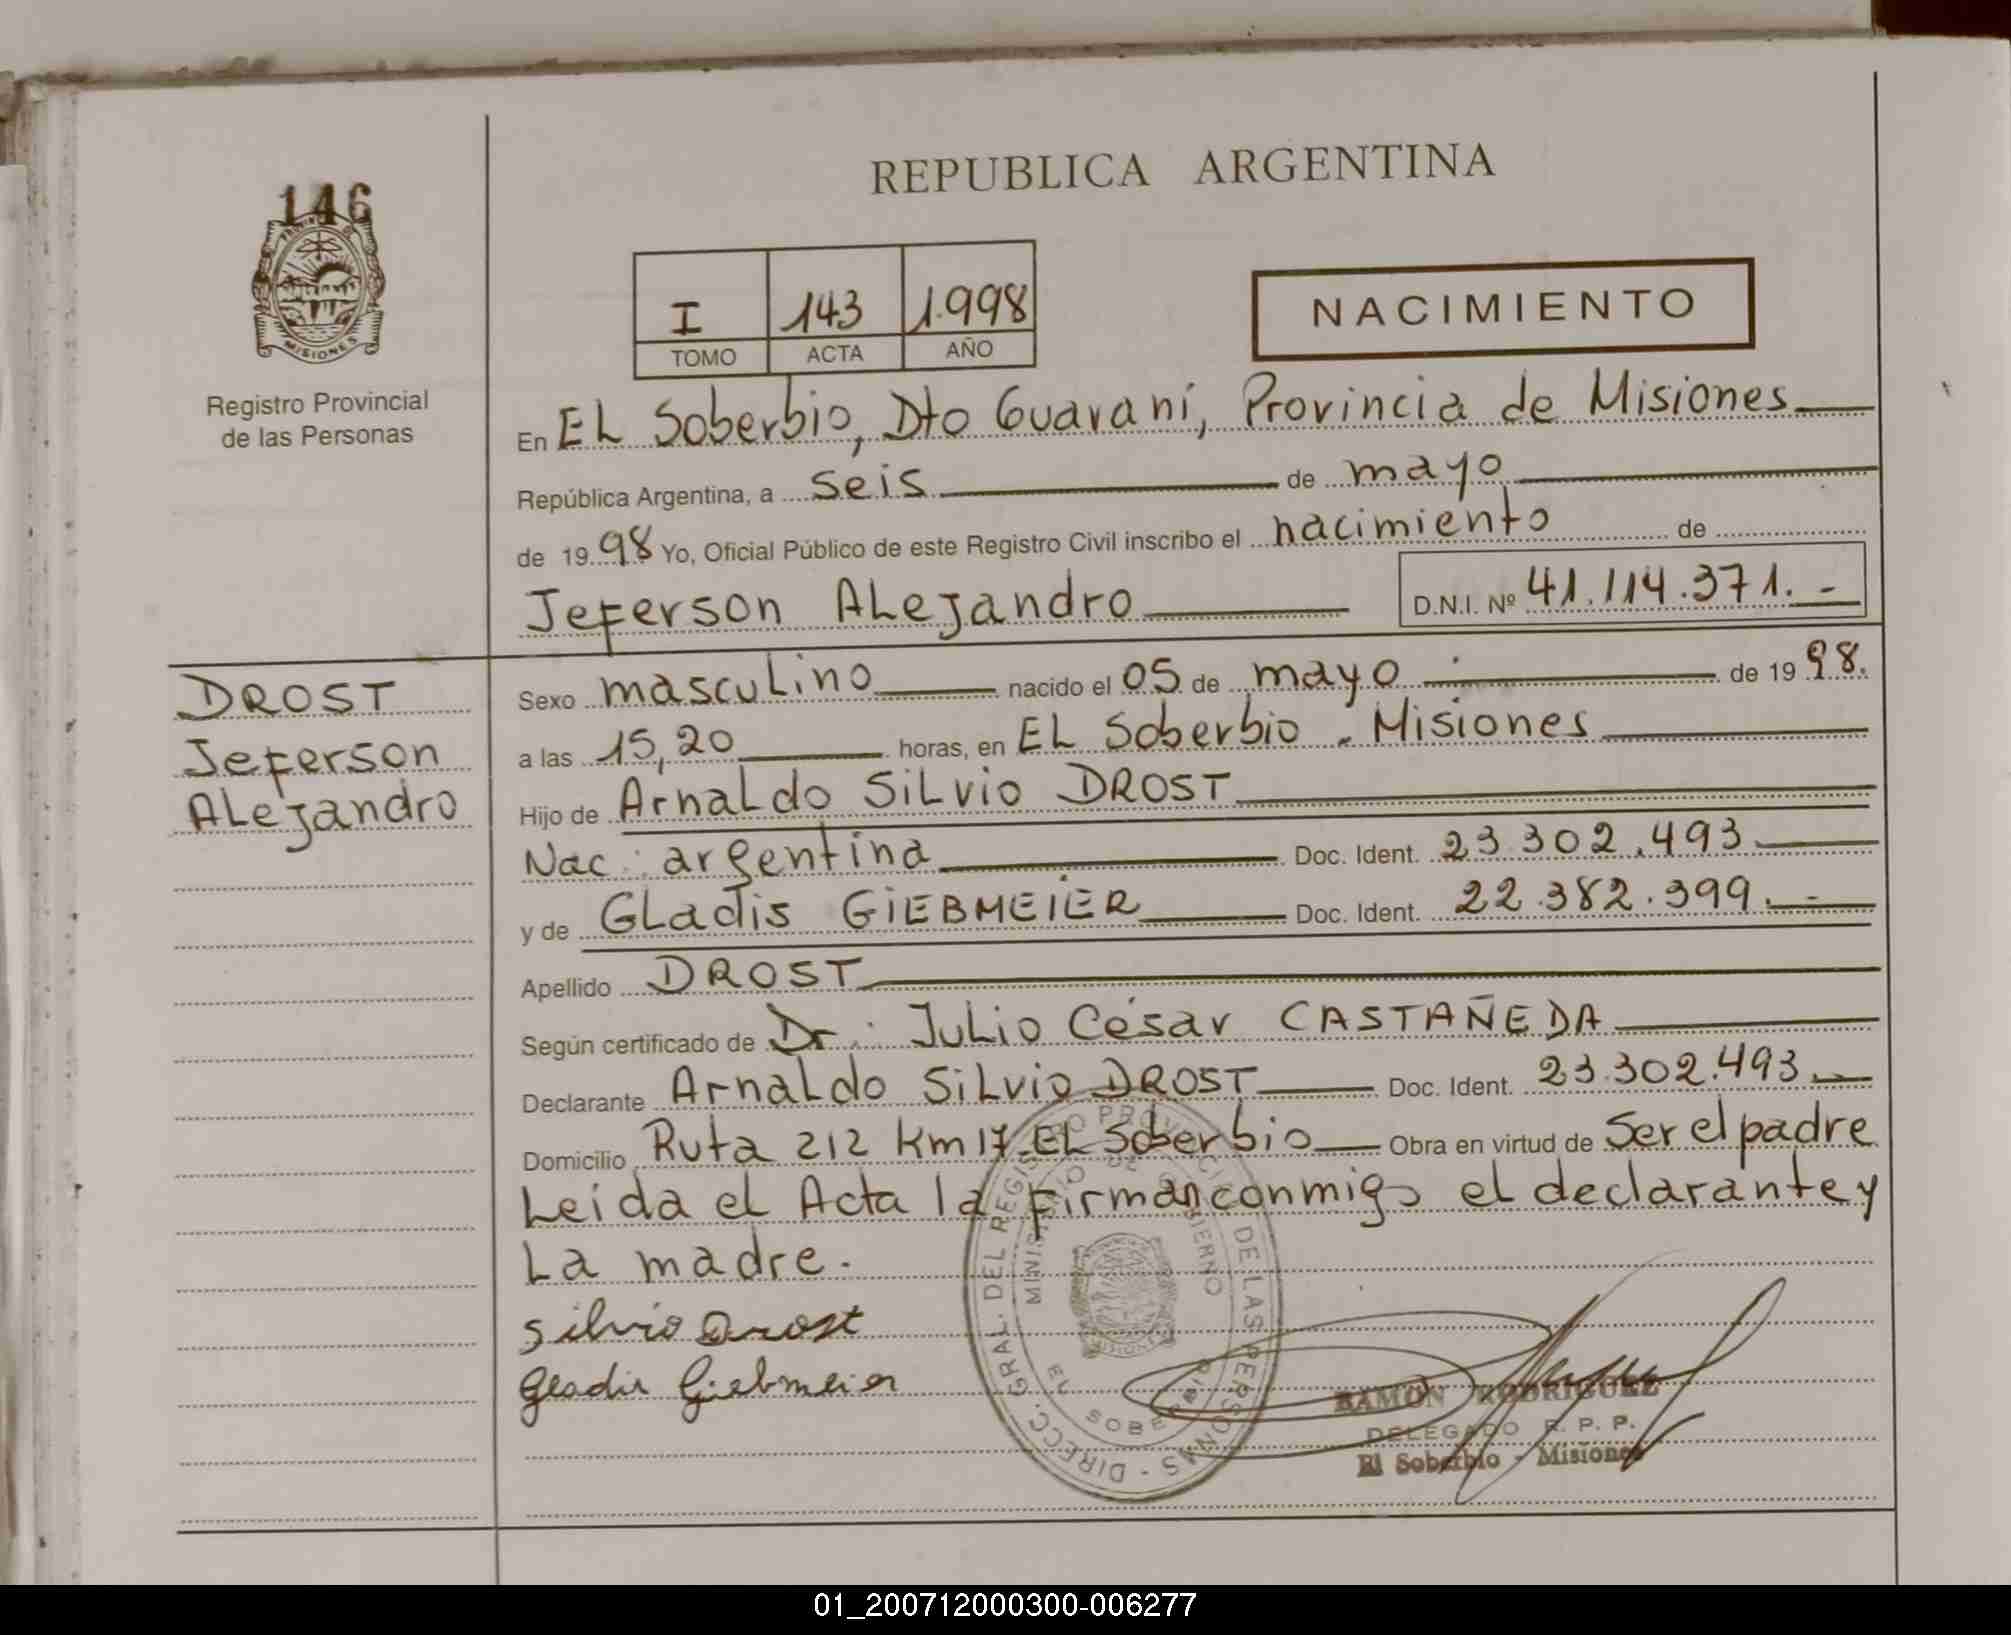 146
MISIONES
Registro Provincial
de las Personas
REPUBLICA ARGENTINA
I 143 1.998
TOMO ACTA AÑO
NACIMIENTO
En EL Soberbio, Dto Guaraní, Provincia de Misiones
República Argentina, a seis de mayo
de 19 98 Yo, Oficial Público de este Registro Civil inscribo el nacimiento de
Jeferson ALejandro D.N.I. Nº 41.114.371.-
DROST
Jeferson
ALejandro
Sexo mascuLino nacido el 05 de mayo de 19 98.
a las 15,20 horas, en EL Soberbio - Misiones
Hijo de ArnaLdo SiLvio DROST
Nac: argentina Doc. Ident. 23.302.493
y de GLadis GiEBMEiER Doc. Ident. 22.382.399.-
Apellido DROST
Según certificado de Dr: JuLio César CASTAÑEDA
Declarante ArnaLdo SiLvio DROST Doc. Ident. 23.302.493
Domicilio Ruta 212 Km 17 EL Soberbio Obra en virtud de Ser el padre
Leida el Acta la firman conmigo el declarante y
La madre.
Silvio Drost
Gladis Giebmeier
DIRECC. GRAL. DEL REGISTRO PROVINCIAL DE LAS PERSONAS
MINISTERIO DE GOBIERNO
EL SOBERBIO
RAMON RODRIGUEZ
DELEGADO R. P. P.
El Soberbio - Misiones
01_200712000300-006277